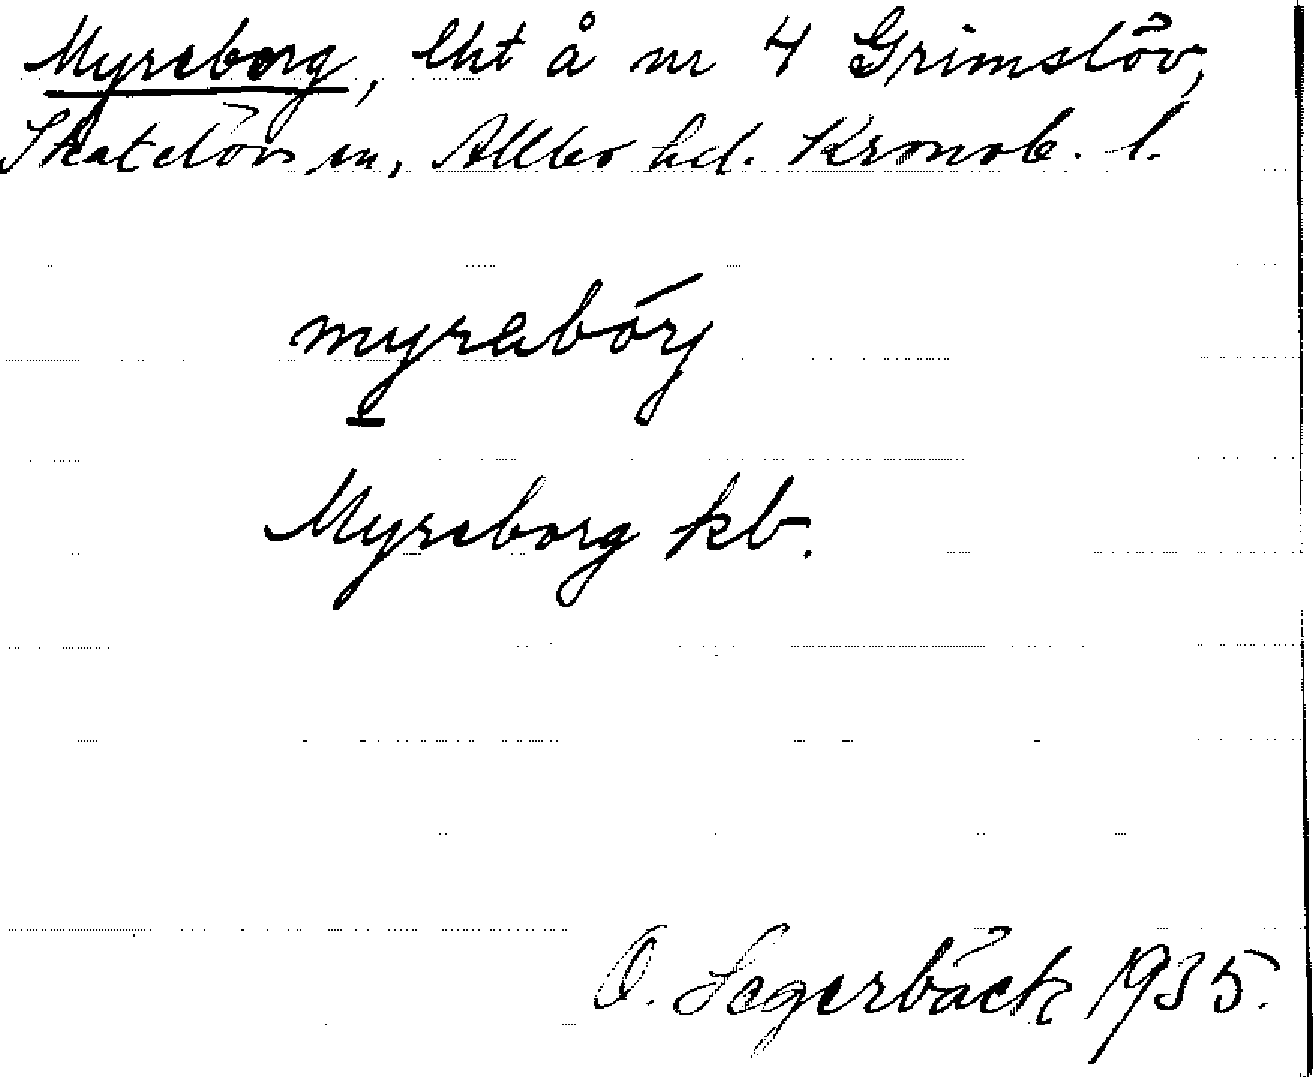 Myreborg, lht å nr 4 Grimslöv,
Skatelövs sn, Allbo hd. Kronob. l.
myrabórj
Myreborg kb.
O. Segerbäck 1935.